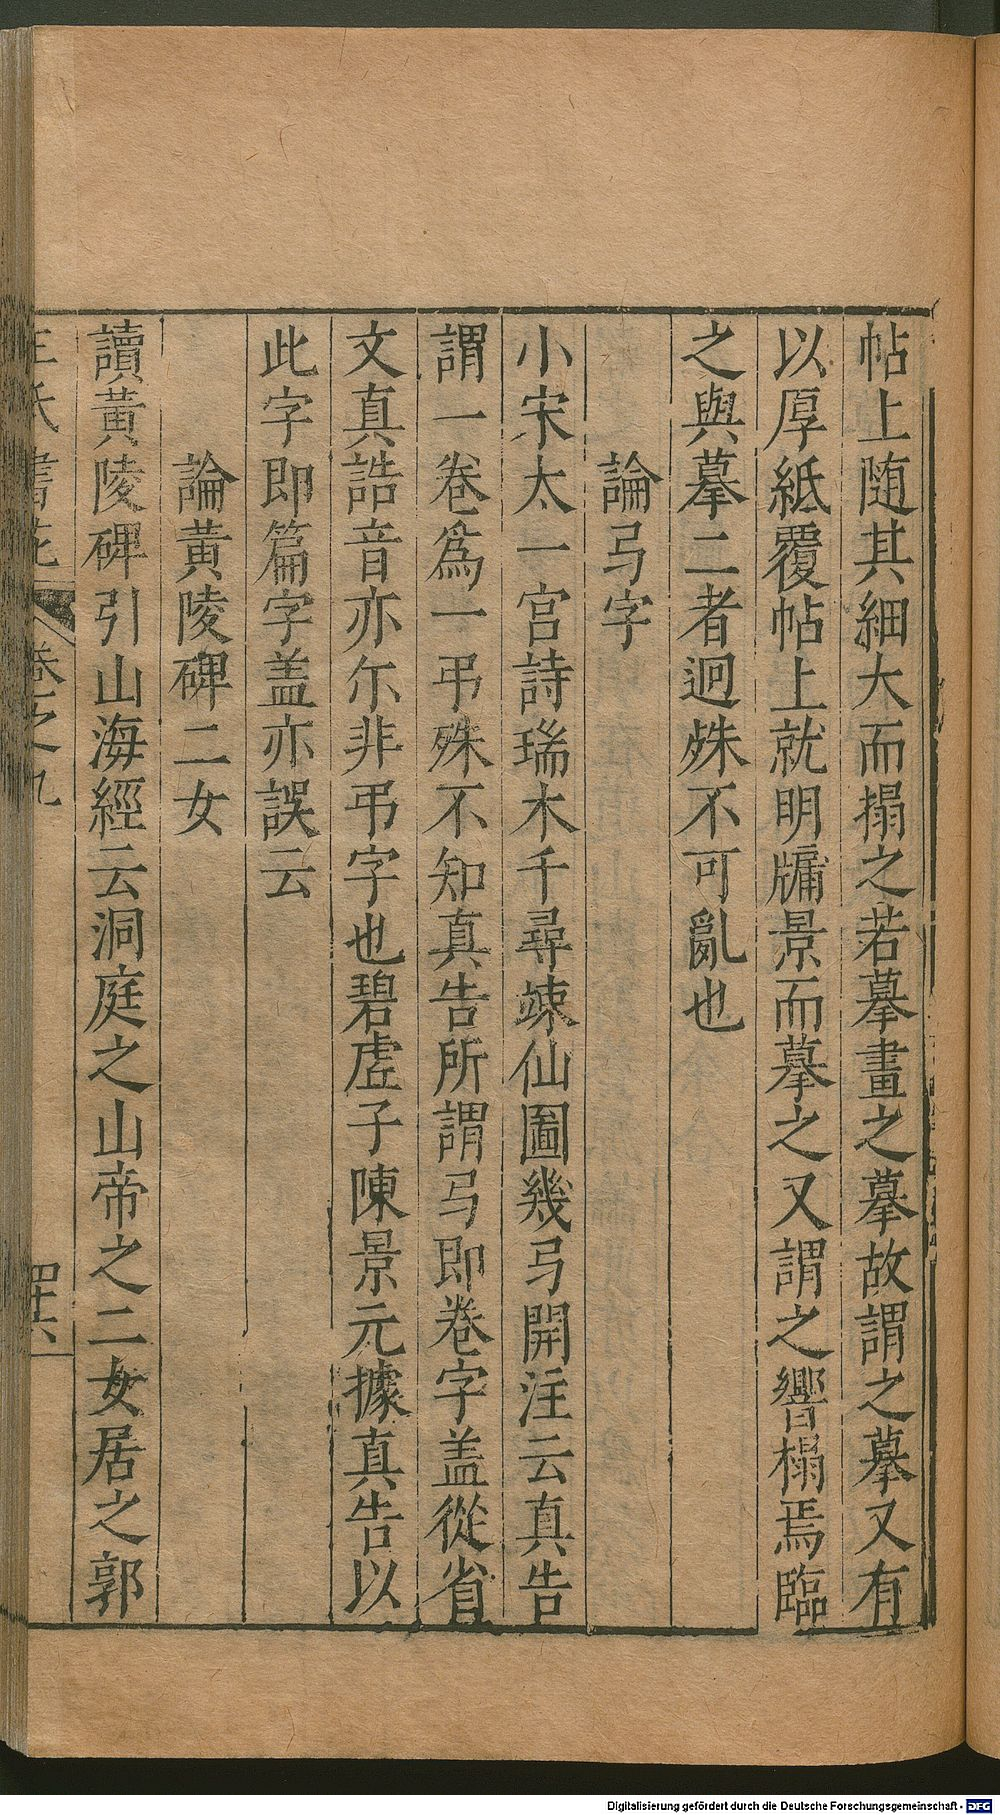 帖上随其細大而搨之若摹畫之摹故謂之摹又有
以厚紙覆帖上就明牖景而摹之又謂之響榻焉臨
之與摹二者迥殊不可亂也
論弓字
小宋太一宫詩瑞木千尋竦仙圖幾弓開注云真告
謂一卷爲一弔殊不知真告所謂弓即卷字盖從省
文真誥音亦尓非弔字也碧虗子陳景元據真告以
此字即篇字盖亦誤云
論黄陵碑二女
讀黄陵碑引山海經云洞庭之山帝之二女居之郭
王氏書苑
卷之九
四十六
Digitalisierung gefördert durch die Deutsche Forschungsgemeinschaft - DFG